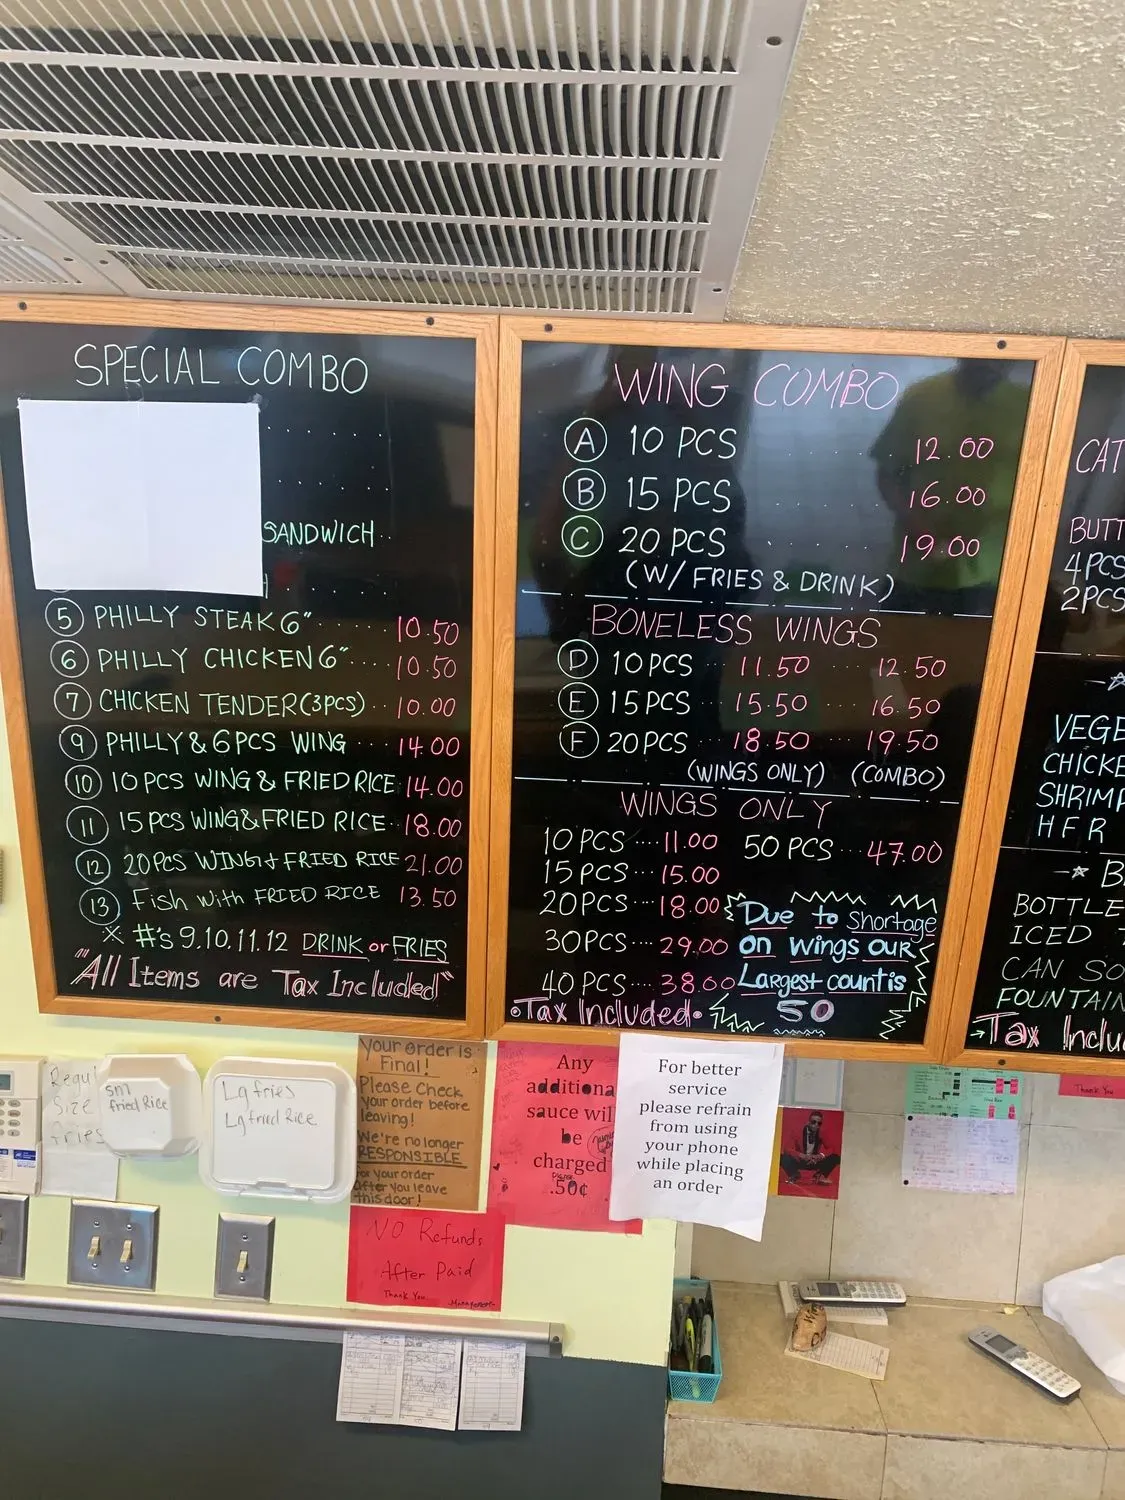 SPECIAL COMBO
SANDWICH
5 PHILLY STEAK 6" 10.50
6 PHILLY CHICKEN 6" 10.50
7 CHICKEN TENDER (3PCS) 10.00
9 PHILLY & 6 PCS WING 14.00
10 10 PCS WING & FRIED RICE 14.00
11 15 PCS WING & FRIED RICE 18.00
12 20PCS WING + FRIED RICE 21.00
13 Fish with FRIED RICE 13.50
※ #'s 9.10.11.12 DRINK or FRIES
"All Items are Tax Included"
WING COMBO
A 10 PCS 12.00
B 15 PCS 16.00
C 20 PCS 19.00
(W/ FRIES & DRINK)
BONELESS WINGS
D 10 PCS 11.50 12.50
E 15 PCS 15.50 16.50
F 20 PCS 18.50 19.50
(WINGS ONLY) (COMBO)
WINGS ONLY
10 PCS 11.00
15 PCS 15.00
20 PCS 18.00
30 PCS 29.00
40 PCS 38.00
50 PCS 47.00
Due to shortage
on wings our
Largest count is
50
Tax Included
CAT
BUTT
4PCS
2PCS
VEGE
CHICKE
SHRIMP
H F R
B
BOTTLE
ICED T
CAN SO
FOUNTAIN
Tax Inclu
Regul
Size
fries
sml
fried Rice
Lg fries
Lg fried Rice
Your order is
Final!
Please Check
your order before
leaving!
We're no longer
RESPONSIBLE
for your order
after you leave
this door!
NO Refunds
After Paid
Thank You
Any
additiona
sauce will
be
charged
.50¢
For better
service
please refrain
from using
your phone
while placing
an order
Thank You